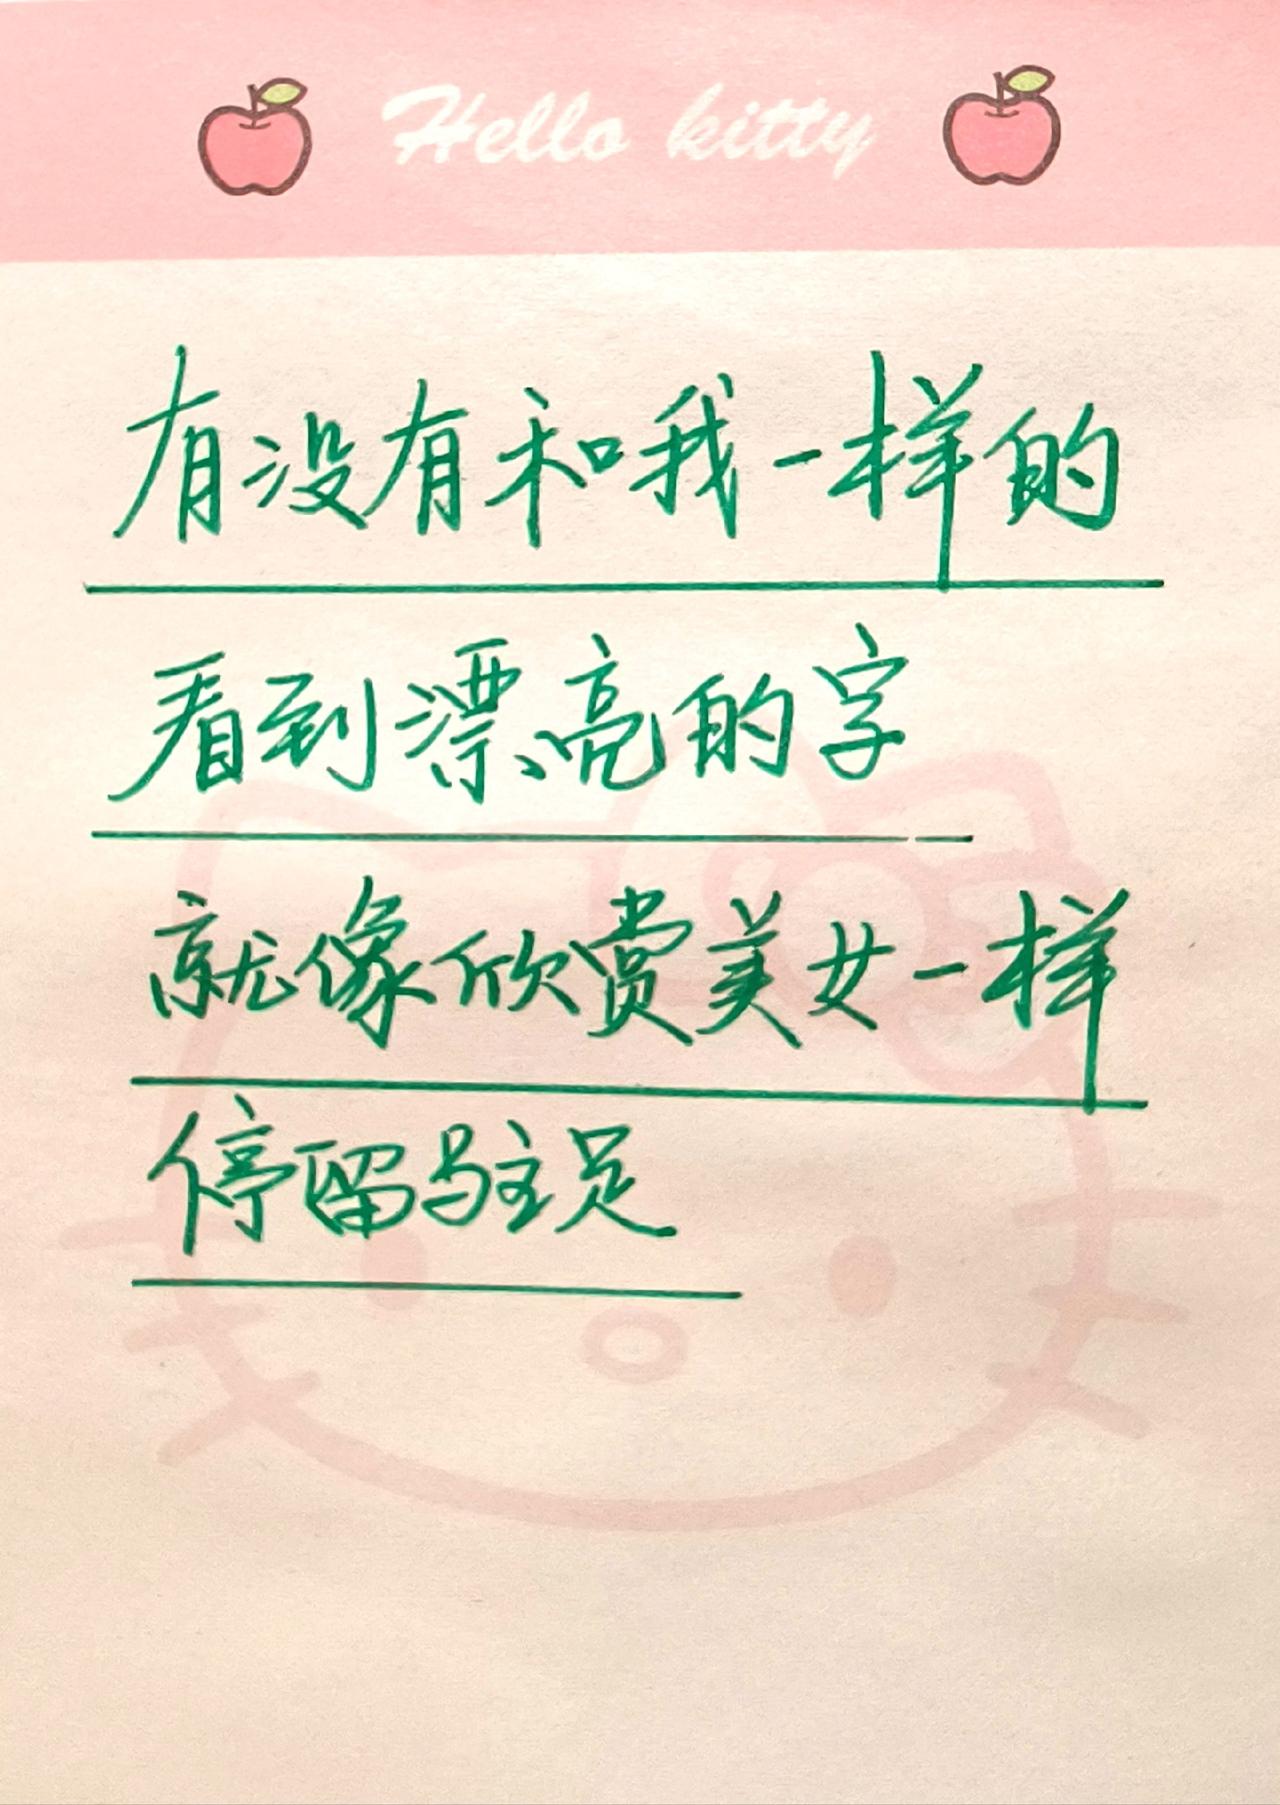 Hello kitty
有没有和我一样的
看到漂亮的字
就像欣赏美女一样
停留驻足